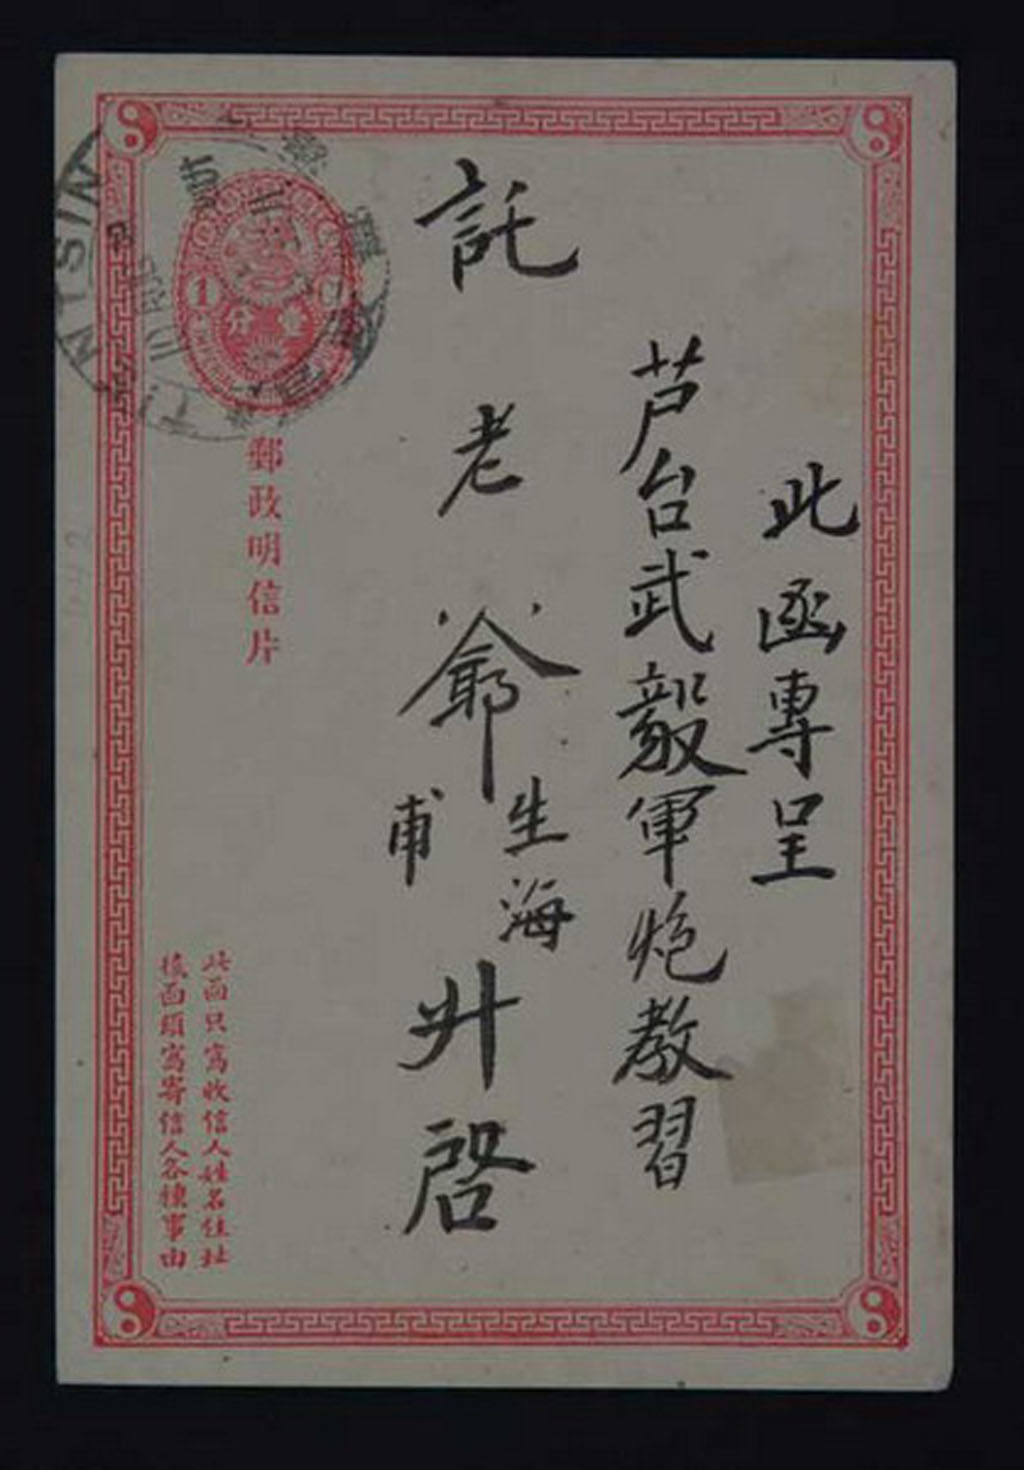 此函專呈
芦台武毅軍炮教習
託老爺生海甫升啓
1
壹分
郵政明信片
此面只寫收信人姓名住址
後面須寫寄信人各種事由